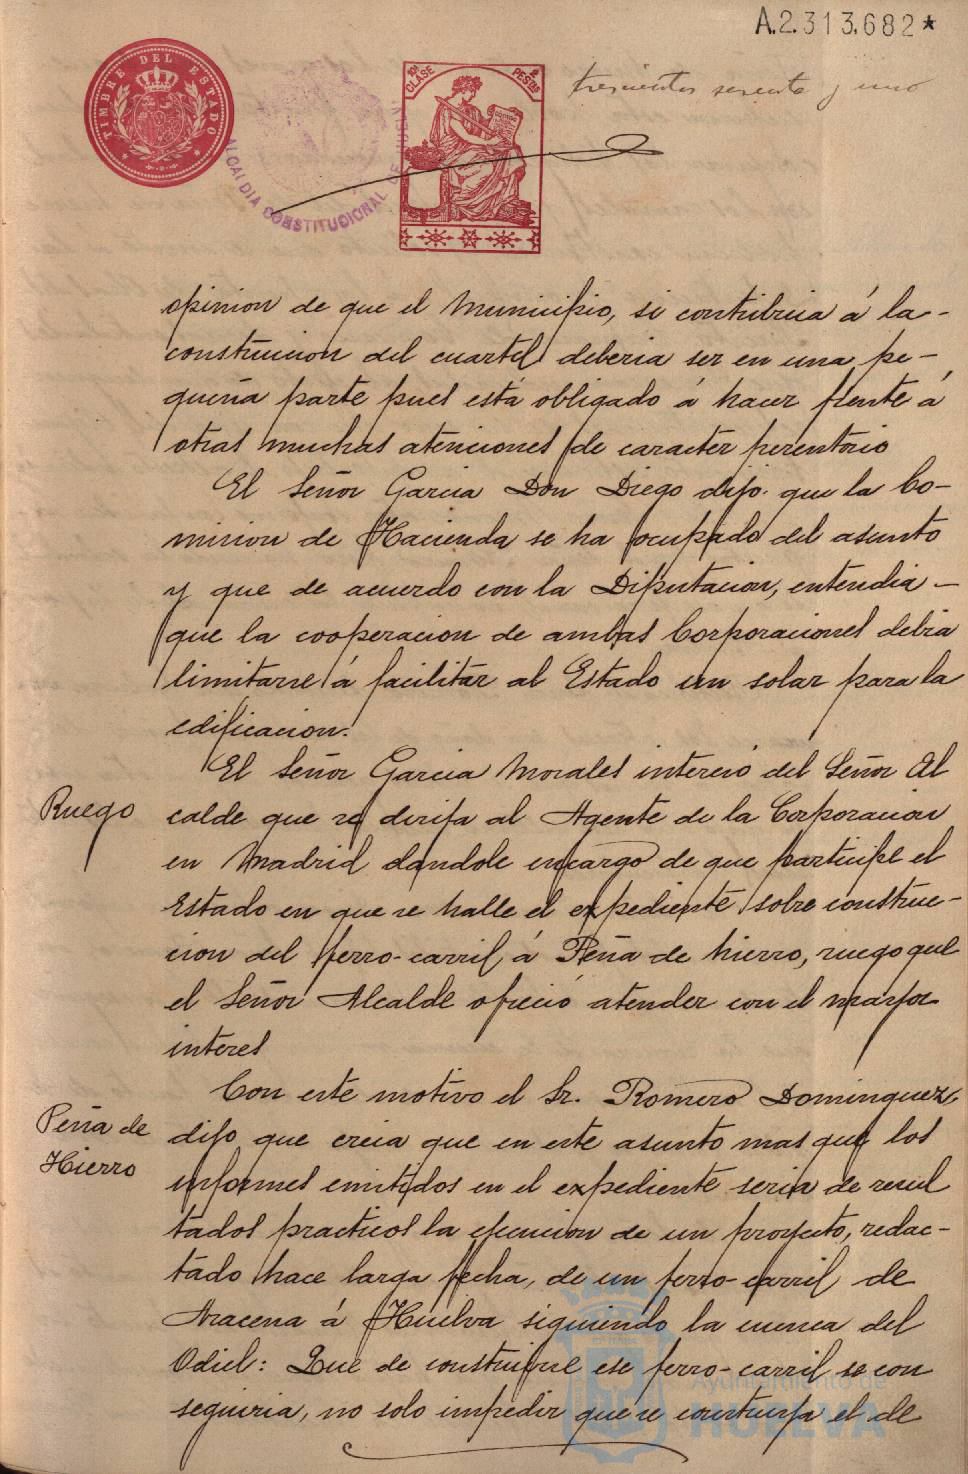 A.2.313,682*
trescientos sesenta y uno
TIMBRE DEL ESTADO
ALCALDIA CONSTITUCIONAL DE
10ª CLASE
2 PESTAS
opinion de que el Municipio, si contribuia á la-
construicion del cuartel deberia ser en una pe-
queña parte pues está obligado á hacer frente á
otras muchas atenciones de caracter perentorio
El Señor Garcia Don Diego dijo que la Co-
mision de Hacienda se ha ocupado del asunto
y que de acuerdo con la Diputacion, entendia-
que la cooperacion de ambas Corporaciones debia
limitarse á facilitar al Estado un solar para la
edificacion.
El Señor Garcia Morales interesó del Señor Al
Ruego
calde que se dirija al Agente de la Corporacion
en Madrid dandole encargo de que participe el
Estado en que se halle el expediente sobre construc-
cion del ferro-carril á Peña de hierro, ruego que
el Señor Alcalde ofreció atender con el mayor
interes
Con este motivo el Sr. Romero Dominguez
Peña de
Hierro
dijo que creia que en este asunto mas que los
informes emitidos en el expediente seria de resul
tados practicos la ejecucion de un proyecto, redac-
tado hace larga fecha, de un ferro-carril de
Aracena á Huelva siguiendo la cuenca del
Odiel: Que de construirse ese ferro-carril se con
seguiria, no solo impedir que se construya el de
Ayuntamiento de
HUELVA